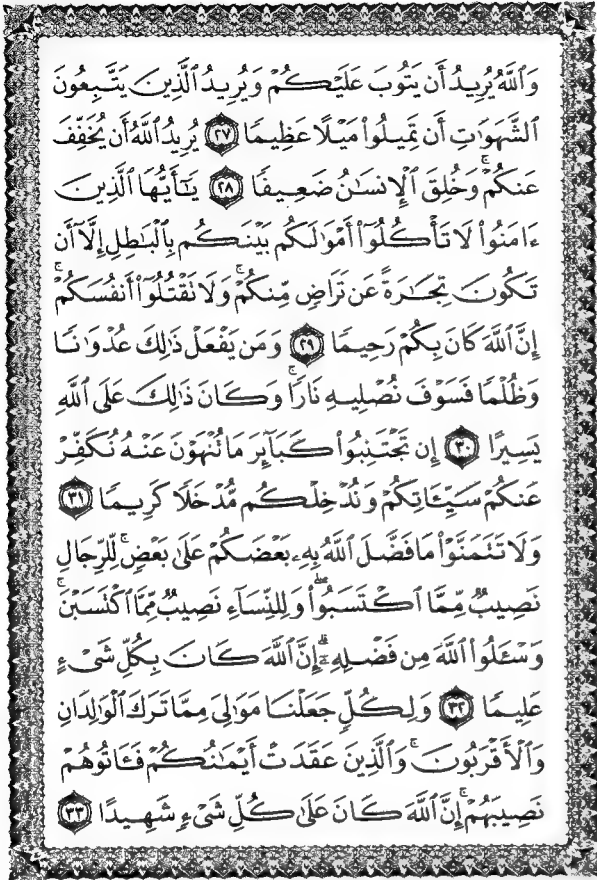 وَٱللَّهُ يُرِيدُ أَن يَتُوبَ عَلَيۡكُمۡ وَيُرِيدُ ٱلَّذِينَ يَتَّبِعُونَ
ٱلشَّهَوَٰتِ أَن تَمِيلُواْ مَيۡلًا عَظِيمٗا ٢٧ يُرِيدُ ٱللَّهُ أَن يُخَفِّفَ
عَنكُمۡۚ وَخُلِقَ ٱلۡإِنسَٰنُ ضَعِيفٗا ٢٨ يَٰٓأَيُّهَا ٱلَّذِينَ
ءَامَنُواْ لَا تَأۡكُلُوٓاْ أَمۡوَٰلَكُم بَيۡنَكُم بِٱلۡبَٰطِلِ إِلَّآ أَن
تَكُونَ تِجَٰرَةً عَن تَرَاضٖ مِّنكُمۡۚ وَلَا تَقۡتُلُوٓاْ أَنفُسَكُمۡۚ
إِنَّ ٱللَّهَ كَانَ بِكُمۡ رَحِيمٗا ٢٩ وَمَن يَفۡعَلۡ ذَٰلِكَ عُدۡوَٰنٗا
وَظُلۡمٗا فَسَوۡفَ نُصۡلِيهِ نَارٗاۚ وَكَانَ ذَٰلِكَ عَلَى ٱللَّهِ
يَسِيرًا ٣٠ إِن تَجۡتَنِبُواْ كَبَآئِرَ مَا تُنۡهَوۡنَ عَنۡهُ نُكَفِّرۡ
عَنكُمۡ سَيِّـَٔاتِكُمۡ وَنُدۡخِلۡكُم مُّدۡخَلٗا كَرِيمٗا ٣١
وَلَا تَتَمَنَّوۡاْ مَا فَضَّلَ ٱللَّهُ بِهِۦ بَعۡضَكُمۡ عَلَىٰ بَعۡضٖۚ لِّلرِّجَالِ
نَصِيبٞ مِّمَّا ٱكۡتَسَبُواْۖ وَلِلنِّسَآءِ نَصِيبٞ مِّمَّا ٱكۡتَسَبۡنَۚ
وَسۡـَٔلُواْ ٱللَّهَ مِن فَضۡلِهِۦٓۗ إِنَّ ٱللَّهَ كَانَ بِكُلِّ شَيۡءٍ
عَلِيمٗا ٣٢ وَلِكُلّٖ جَعَلۡنَا مَوَٰلِيَ مِمَّا تَرَكَ ٱلۡوَٰلِدَانِ
وَٱلۡأَقۡرَبُونَۚ وَٱلَّذِينَ عَقَدَتۡ أَيۡمَٰنُكُمۡ فَـَٔاتُوهُمۡ
نَصِيبَهُمۡۚ إِنَّ ٱللَّهَ كَانَ عَلَىٰ كُلِّ شَيۡءٖ شَهِيدًا ٣٣